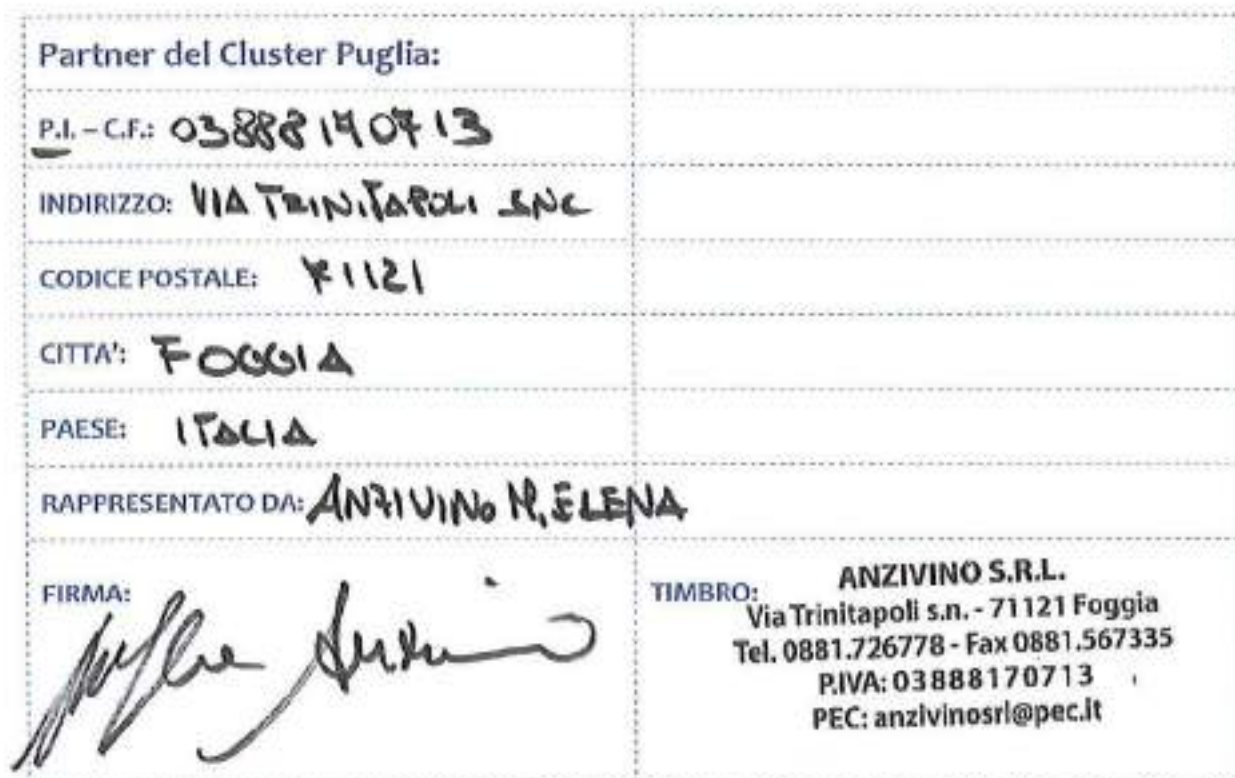 Partner del Cluster Puglia:
P.I. – C.F.: 03888170713
INDIRIZZO: VIA TRINITAPOLI SNC
CODICE POSTALE: 71121
CITTA': FOGGIA
PAESE: ITALIA
RAPPRESENTATO DA: ANZIVINO M. ELENA
FIRMA:
TIMBRO:
ANZIVINO S.R.L.
Via Trinitapoli s.n. - 71121 Foggia
Tel. 0881.726778 - Fax 0881.567335
P.IVA: 03888170713
PEC: anzivinosrl@pec.it